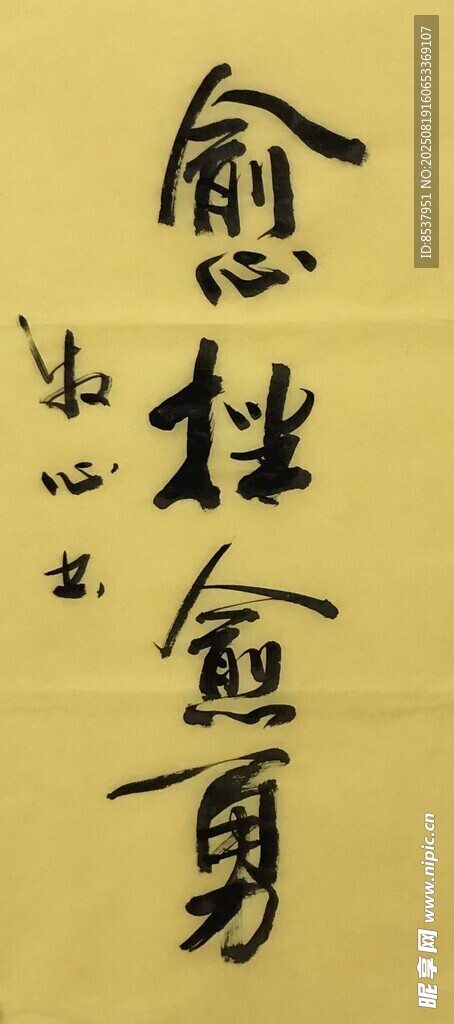 愈挫愈勇
牧心书
ID:8537951 NO:20250819160653369107
昵享网 www.nipic.cn